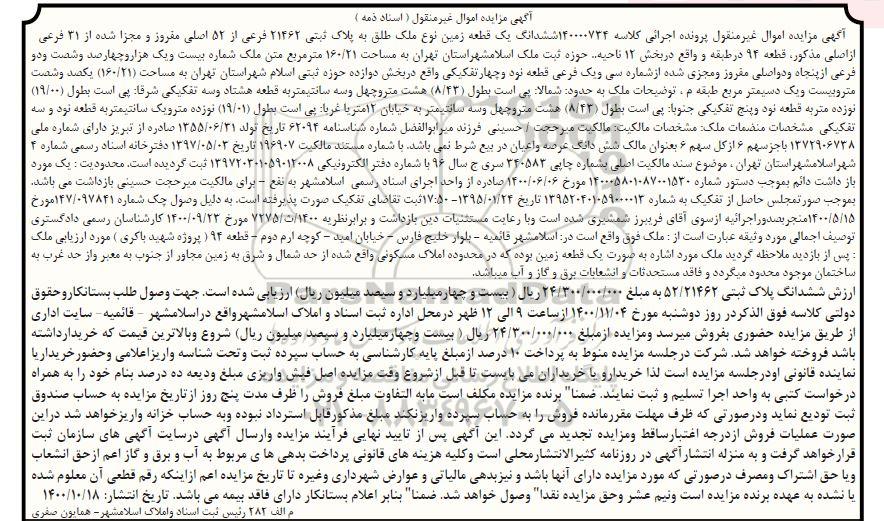 آگهی مزایده اموال غیرمنقول ( اسناد ذمه )
آگهی مزایده اموال غیرمنقول پرونده اجرائی کلاسه ۱۴۰۰۰۰۷۳۴ششدانگ یک قطعه زمین نوع ملک طلق به پلاک ثبتی ۲۱۴۶۲ فرعی از ۵۲ اصلی مفروز و مجزا شده از ۳۱ فرعی
ازاصلی مذکور، قطعه ۹۴ درطبقه و واقع دربخش ۱۲ ناحیه.. حوزه ثبت ملک اسلامشهراستان تهران به مساحت ۱۶۰/۲۱ مترمربع متن ملک شماره بیست ویک هزاروچهارصد وشصت ودو
فرعی ازپنجاه ودواصلی مفروز ومجزی شده ازشماره سی ویک فرعی قطعه نود وچهارتفکیکی واقع دربخش دوازده حوزه ثبتی اسلام شهراستان تهران به مساحت (۱۶۰/۲۱) یکصد وشصت
متروبیست ویک دسیمتر مربع طبقه م ، توضیحات ملک به حدود: شمالا: پی است بطول (۸/۴۳) هشت متروچهل وسه سانتیمتربه قطعه هشتاد وسه تفکیکی شرقا: پی است بطول (۱۹/۰۰)
نوزده متربه قطعه نود وپنج تفکیکی جنوبا: پی است بطول (۸/۴۳) هشت متروچهل وسه سانتیمتر به خیابان ۱۲متریا غربا: پی است بطول (۱۹/۰۱) نوزده مترویک سانتیمتربه قطعه نود و سه
تفکیکی مشخصات منضمات ملک: مشخصات مالکیت: مالکیت میرحجت/ حسینی فرزند میرابوالفضل شماره شناسنامه ۶۲۰۹۴ تاریخ تولد ۱۳۵۵/۰۶/۳۱ صادره از تبریز دارای شماره ملی
۱۳۷۲۹۰۶۷۳۸ باجزسهم ۶ ازکل سهم ۶ بعنوان مالک شش دانگ عرصه واعیان در بیع شرط نمی باشد. با شماره مستند مالکیت ۱۹۶۹۰۷ تاریخ ۱۳۹۷/۰۵/۰۳ دفترخانه اسناد رسمی شماره ۴
شهراسلامشهراستان تهران ، موضوع سند مالکیت اصلی بشماره چاپی ۳۴۰۵۸۳ سری ج سال ۹۶ با شماره دفتر الکترونیکی ۱۳۹۷۲۰۳۰۱۰۵۹۰۱۲۰۰۸ ثبت گردیده است. محدودیت : یک مورد
باز داشت دائم بموجب دستور شماره ۱۴۰۰۰۵۸۰۱۰۸۷۰۰۱۵۳۰ مورخ ۱۴۰۰/۰۶/۰۶ صادره از واحد اجرای اسناد رسمی اسلامشهر به نفع - برای مالکیت میرحجت حسینی بازداشت می باشد.
بموجب صورتمجلس حاصل از تفکیک به شماره ۱۳۹۵۲۰۴۰۱۰۵۹۰۰۰۰۱۳ تاریخ ۱۳۹۵/۰۱/۲۴- ۱۷:۵۰ثبت تقاضای تفکیک صورت پذیرفته است. به دلیل وصول چک شماره ۱۴۷/۰۹۷۸۴۱مورخ
۱۴۰۰/۵/۱۵منجربصدوراجرائیه ازسوی آقای فریبرز شمشیری شده است وبا رعایت مستثنیات دین بازداشت و برابرنظریه ۱۴۰۰/ث/۷۲۷۵ مورخ ۱۴۰۰/۰۹/۲۳ کارشناسان رسمی دادگستری
توصیف اجمالی مورد وثیقه عبارت است از : ملک فوق واقع است در: اسلامشهر قائمیه - بلوار خلیج فارس - خیابان امید - کوچه ارم دوم - قطعه ۹۴ ( پروژه شهید باکری ) مورد ارزیابی ملک
: پس از بازدید ملاحظه گردید ملک مورد اشاره به صورت یک قطعه زمین بوده که در محدوده املاک مسکونی واقع شده از حد شمال و شرق به زمین مجاور از جنوب به معبر واز حد غرب به
ساختمان موجود محدود میگردد و فاقد مستحدثات و انشعابات برق و گاز و آب میباشد.
ارزش ششدانگ پلاک ثبتی ۵۲/۲۱۴۶۲ به مبلغ ۲۴/۳۰۰/۰۰۰/۰۰۰ ریال ( بیست و چهارمیلیارد و سیصد میلیون ریال) ارزیابی شده است. جهت وصول طلب بستانکاروحقوق
دولتی کلاسه فوق الذکردر روز دوشنبه مورخ ۱۴۰۰/۱۱/۰۴ ازساعت ۹ الی ۱۲ ظهر درمحل اداره ثبت اسناد و املاک اسلامشهرواقع دراسلامشهر - قائمیه- سایت اداری
از طریق مزایده حضوری بفروش میرسد ومزایده ازمبلغ ۲۴/۳۰۰/۰۰۰/۰۰۰ ریال ( بیست و چهارمیلیارد و سیصد میلیون ریال) شروع وبالاترین قیمت که خریدارداشته
باشد فروخته خواهد شد. شرکت درجلسه مزایده منوط به پرداخت ۱۰ درصد ازمبلغ پایه کارشناسی به حساب سپرده ثبت وتحت شناسه واریزاعلامی وحضورخریداریا
نماینده قانونی اودرجلسه مزایده است لذا خریدارو یا خریداران می بایست تا قبل ازشروع وقت مزایده اصل فیش واریزی مبلغ ودیعه ده درصد بنام خود را به همراه
درخواست کتبی به واحد اجرا تسلیم و ثبت نمایند. ضمنا" برنده مزایده مکلف است مابه التفاوت مبلغ فروش را ظرف مدت پنج روز ازتاریخ مزایده به حساب صندوق
ثبت تودیع نماید ودرصورتی که ظرف مهلت مقررمانده فروش را به حساب سپرده واریزنکند مبلغ مذکورقابل استرداد نبوده وبه حساب خزانه واریزخواهد شد دراین
صورت عملیات فروش ازدرجه اعتبارساقط ومزایده تجدید می گردد. این آگهی پس از تایید نهایی فرآیند مزایده وارسال آگهی درسایت آگهی های سازمان ثبت
قرارخواهد گرفت و به منزله انتشارآگهی در روزنامه کثیرالانتشارمحلی است وکلیه هزینه های قانونی پرداخت بدهی ها ی مربوط به آب و برق و گاز اعم ازحق انشعاب
ویا حق اشتراک ومصرف درصورتی که مورد مزایده دارای آنها باشد و نیزبدهی مالیاتی و عوارض شهرداری وغیره تا تاریخ مزایده اعم ازاینکه رقم قطعی آن معلوم شده
یا نشده به عهده برنده مزایده است ونیم عشر وحق مزایده نقدا" وصول خواهد شد. ضمنا" بنابر اعلام بستانکار دارای فاقد بیمه می باشد. تاریخ انتشار: ۱۴۰۰/۱۰/۱۸
م الف ۲۸۲ رئیس ثبت اسناد واملاک اسلامشهر- همایون صفری